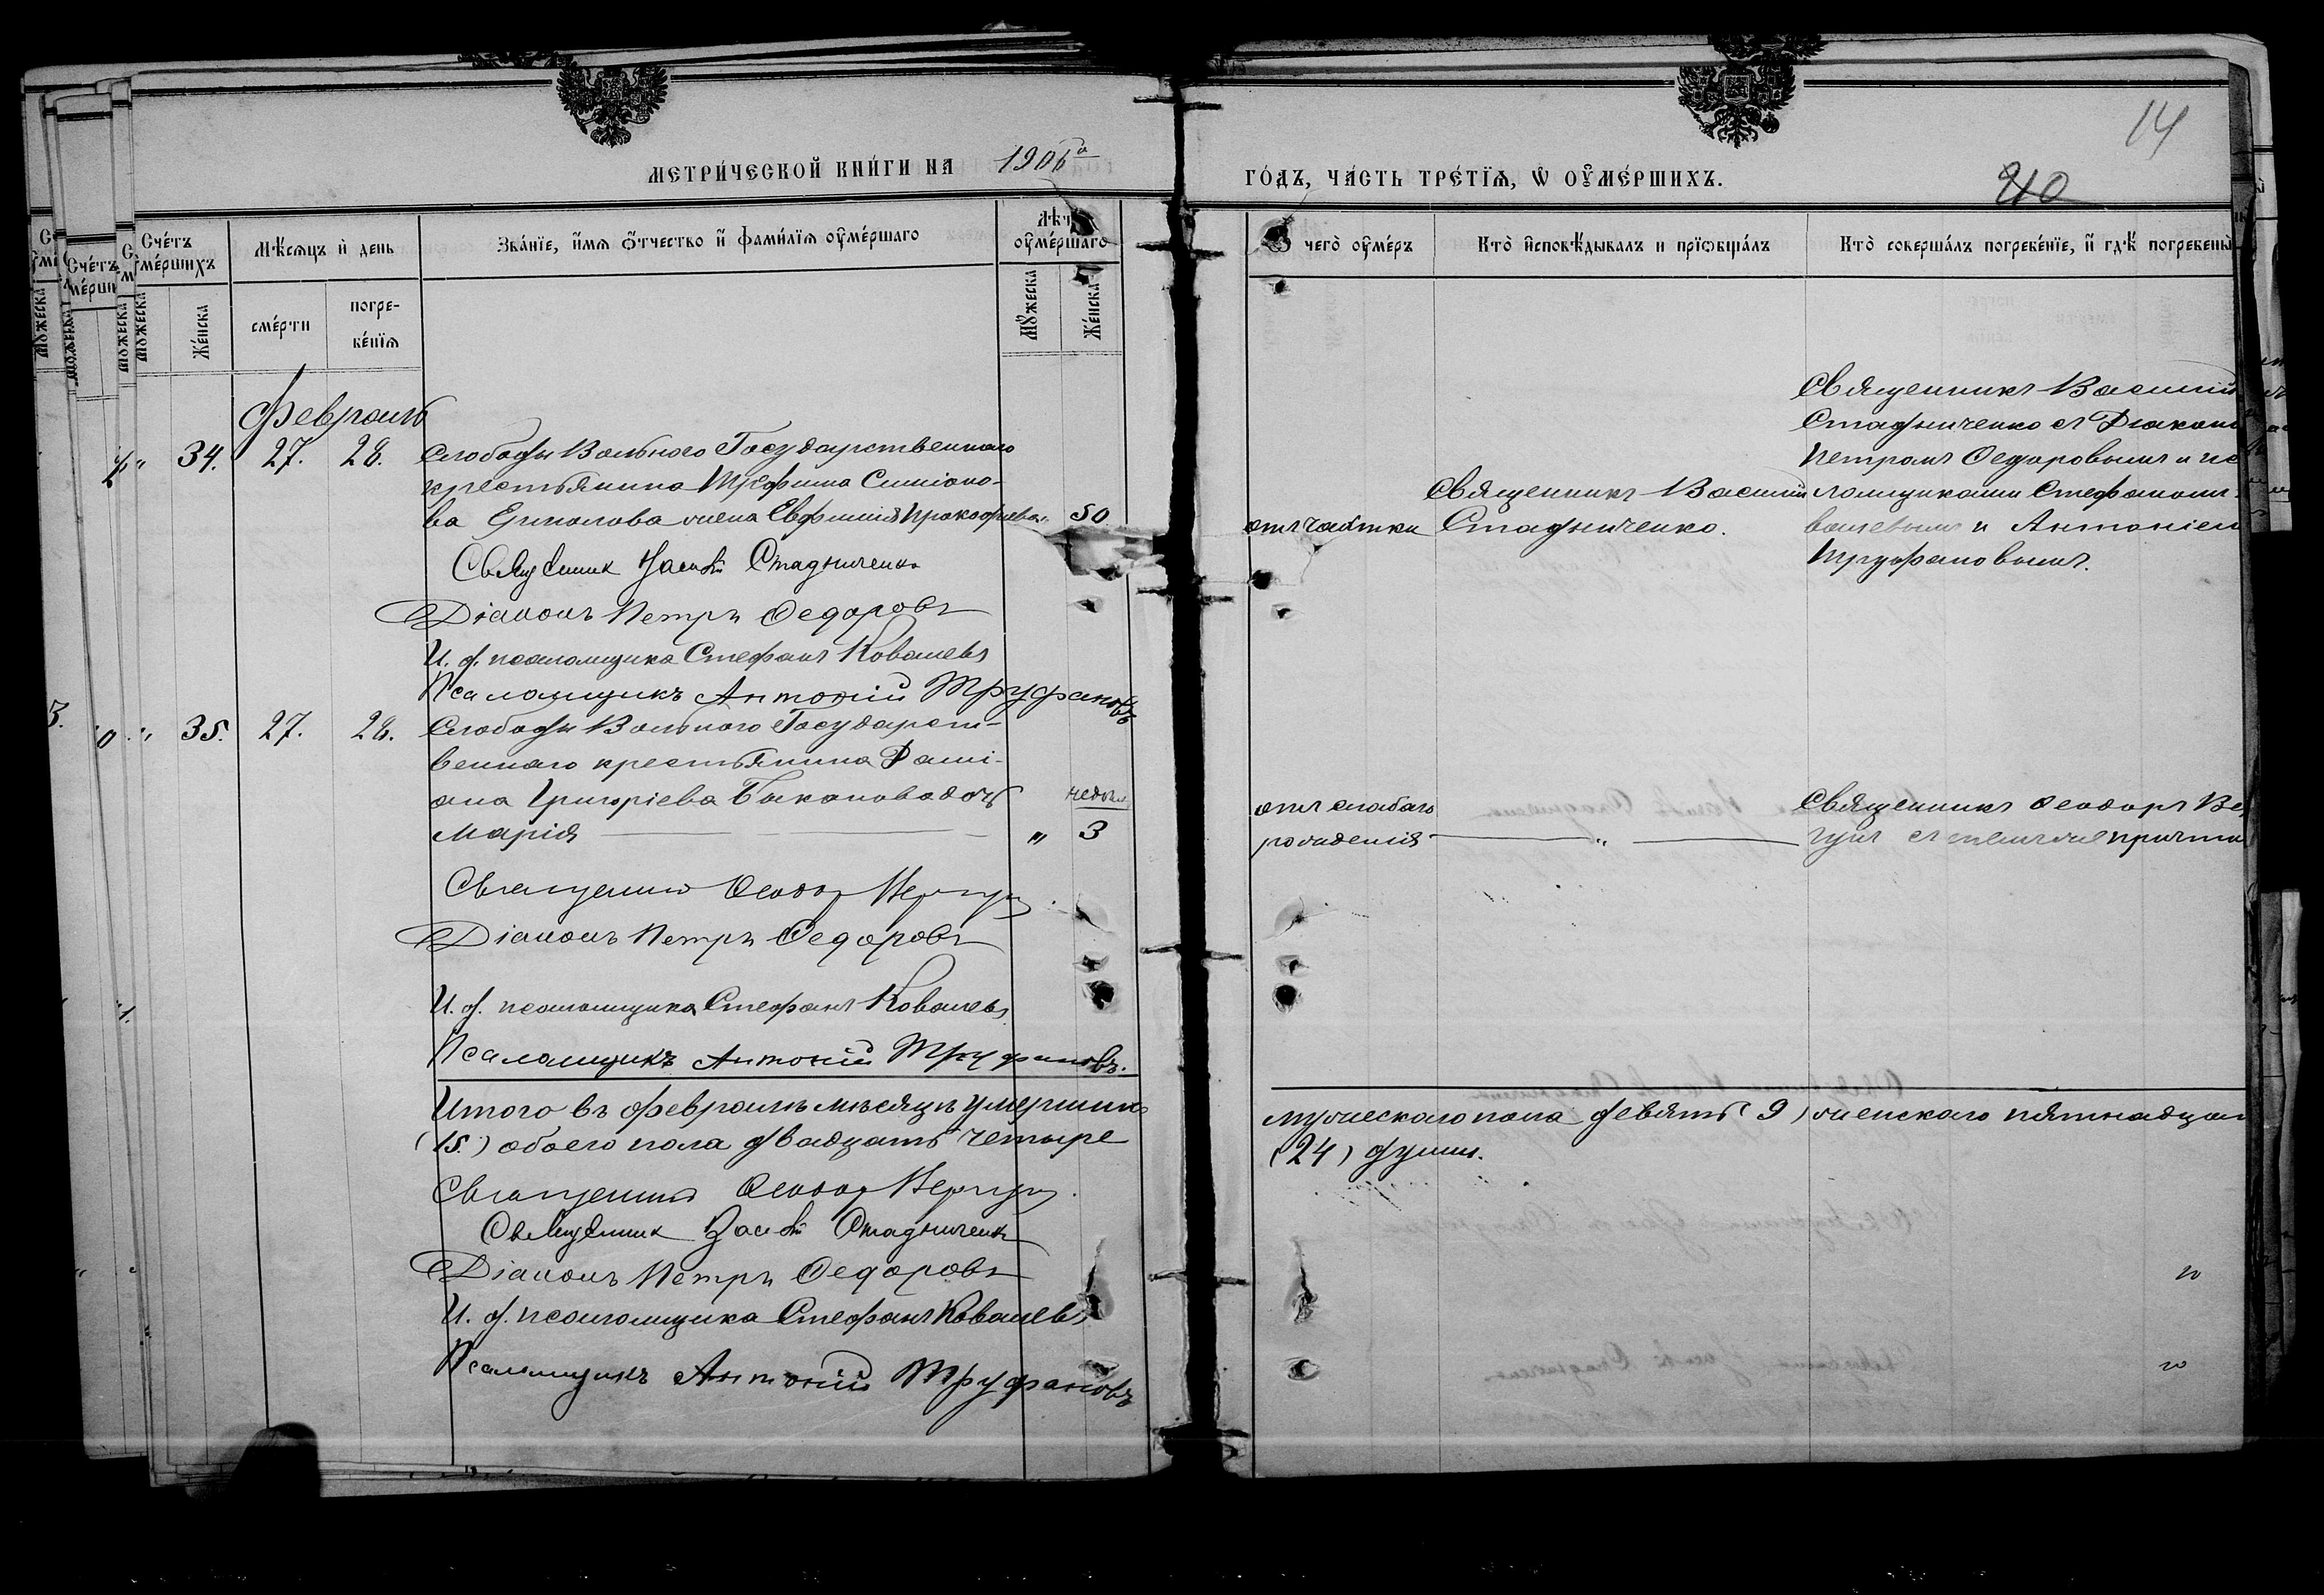 МЕТРИ́ЧЕСКОЙ КНИ́ГИ НА 1906 й
ГО́ДЪ, ЧА́СТЬ ТРЕ́ТЇѦ, Ѡ ОУ҆МЕ́РШИХЪ.
14
40
Сче́тъ оу҆ме́ршихъ
Мѣ́сѧцъ и҆ день
Зва́нїе, и҆́мѧ ѻ҆́тчество и҆ фами́лїѧ оу҆ме́ршаго
Лѣ́т
оу҆ме́ршаго
чегѡ̀ оу҆ме́ръ
Кто̀ и҆сповѣ́дывалъ и прїѡбща́лъ
Кто̀ соверша́лъ погребе́нїе, и҆ гдѣ̀ погребены̀
Мꙋ́жеска
Же́нска
сме́рти
погре-
бе́нїѧ
Мꙋ́жеска
Же́нска
Февраль
„ 34. 27. 28.
Слободы Вольного Государственнаго
крестьянина Трофима Симіоно-
ва Ермолова жена Евфимія Прокофьева „ 50
Священник Василій Стадниченко
Діаконъ Петръ Ѳедоровъ
И. д. псаломщика Стефанъ Ковалевъ
Псаломщикъ Антоній Труфановъ
отъ чахотки
Священникъ Василій
Стадниченко.
Священникъ Василій
Стадниченко съ Діакон
Петромъ Ѳедоровымъ и пса
ломщиками Стефаномъ
валевымъ и Антоніем
Труфановымъ.
„ 35. 27. 28.
Слободы Вольного Государст-
веннаго крестьянина Дамі-
ана Григоріева Баканова дочь недѣл.
Марія „ 3
отъ слабаго
рожденія „
Священникъ Ѳеодоръ Ве
гунъ съ тѣмъ же причто
Священник Ѳеодор Вергун
Діаконъ Петръ Ѳедоровъ
И. д. псаломщика Стефанъ Ковалевъ
Псаломщикъ Антоній Труфановъ.
Итого въ февралѣ мѣсяцѣ умершихъ мужескаго пола девять (9) женскаго пятнадцат
(15.) обоего пола двадцать четыре (24) души.
Священник Ѳеодор Вергун
Священник Василій Стадниченко
Діаконъ Петръ Ѳедоровъ
И. д. псаломщика Стефанъ Ковалевъ
Псаломщикъ Антоній Труфановъ